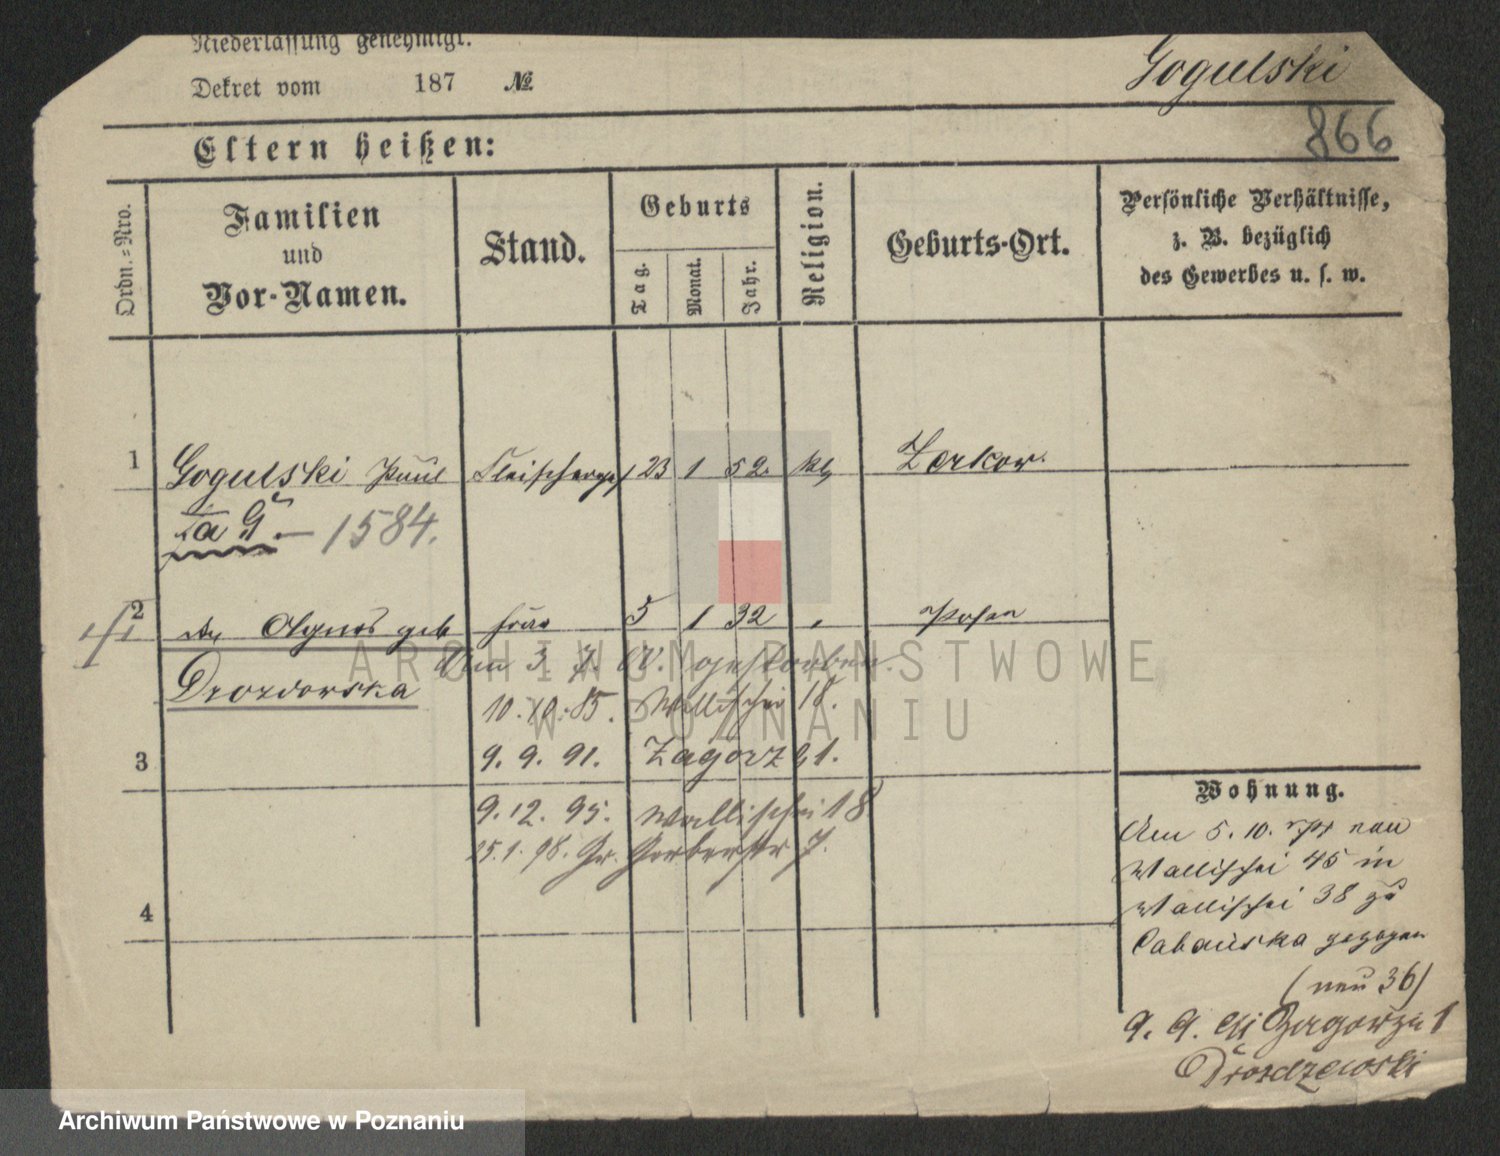 Niederlassung genehmigt.
Dekret vom 187 №
Gogulski
866
Eltern heißen:
Ordn.=Nro.
Familien
und
Vor-Namen.
Stand.
Geburts
Tag.
Monat.
Jahr.
Religion.
Geburts-Ort.
Persönliche Verhältnisse,
z. B. bezüglich
des Gewerbes u. s. w.
1 Gogulski Paul Fleischerges 23 1 52. klg Zerkow.
1584.
2 Agnes geb Frau 5 1 32 Posen
Drozdowska
Am 3. 7. gestorben.
10. 10. 85. Wallischei 18.
3 9. 9. 91. Zagorze 1.
9. 12. 95. Wallischei 18
25. 1. 98. Gr. Gerberstr 7.
4
Wohnung.
Am 5. 10. von
Wallischei 45 in
Wallischei 38 zu
gezogen
(neu 36)
9. 9. 91 Zagorze 1
Drozdzewski
ARCHIWUM PAŃSTWOWE
W POZNANIU
Archiwum Państwowe w Poznaniu